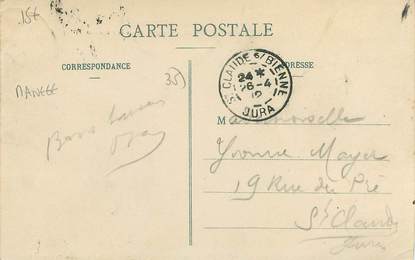 15€
CARTE POSTALE
CORRESPONDANCE
ADRESSE
35)
MANEGE
ST CLAUDE S/ BIENNE
24 *
26-4
12
JURA
Mademoiselle
Yvonne Mayer
19 Rue du Pré
St Claude
Jura